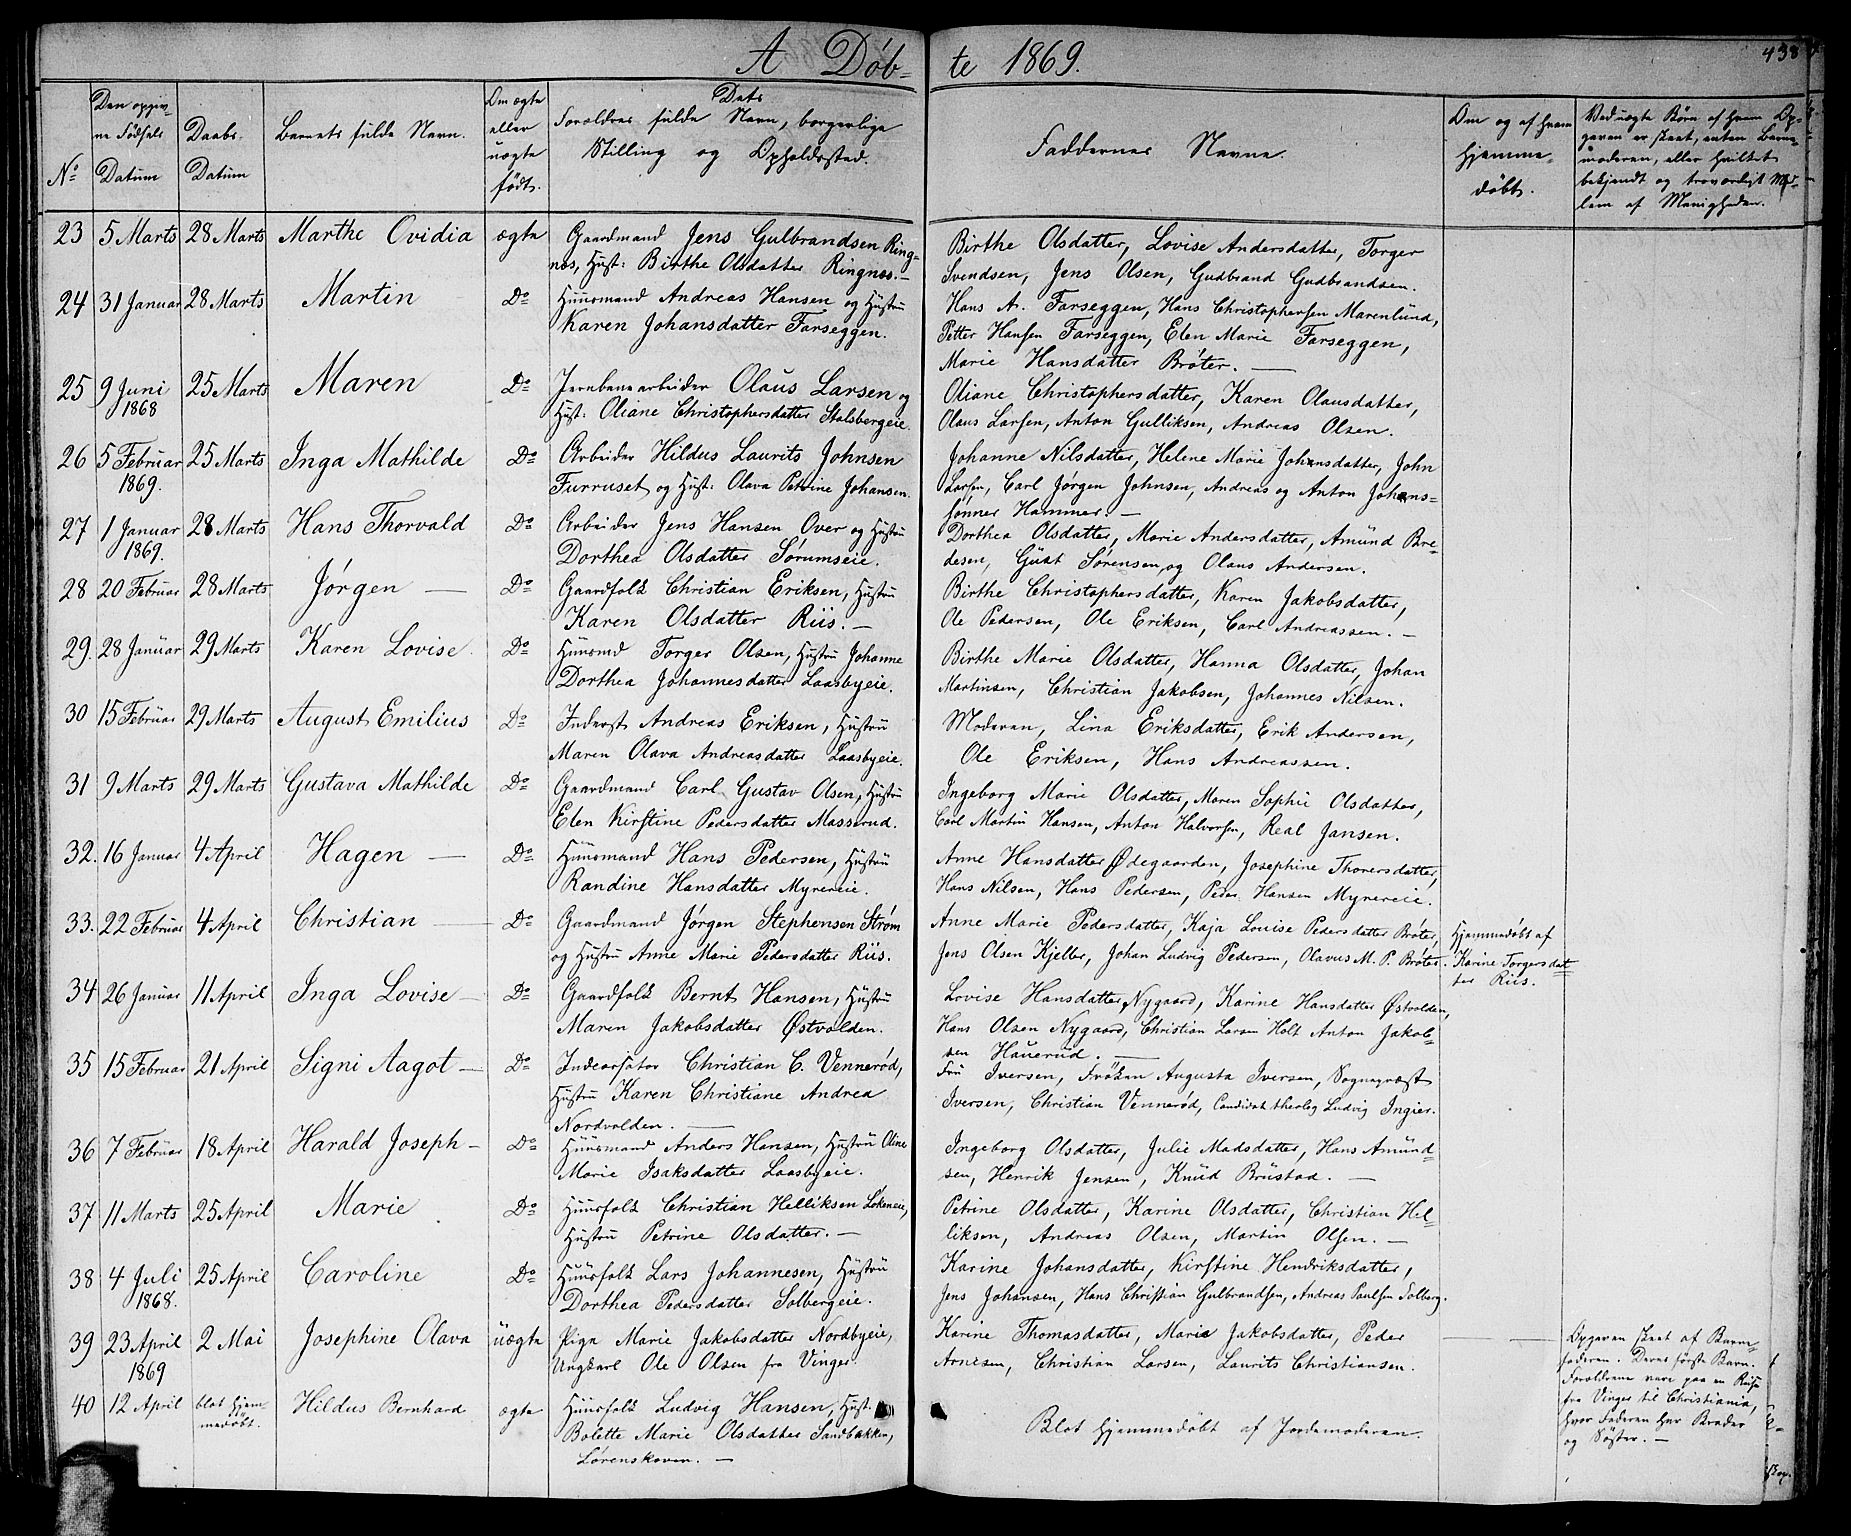 A Døb-
te 1869.
438
No
Den opgiv
ne Fødsels
Datum
Daabs-
Datum
Barnets fulde Navn.
Om ægte
eller
uægte
født.
Dets
Forældres fulde Navn, borgerlige
Stilling og Opholdssted.
Faddernes Navne.
Om og af hvem
hjemme-
døbt.
Ved uægte Børn af hvem Op-
gaven er skeet, enten Barne-
moderen, eller hvilket
bekjendt og troværdigt Med-
lem af Menigheden.
23 5 Marts 28 Marts Marthe Ovidia ægte Gaardmand Jens Gulbrandsen Ring-
næs, Hust: Birthe Olsdatter Ringnæs.—
Birthe Olsdatter, Lovise Andersdatter, Torger
Svendsen, Jens Olsen, Gudbrand Gudbrandsen.
24 31 Januar 28 Marts Martin Do Huusmand Andreas Hansen og Hustru
Karen Johansdatter Farseggen.
Hans A. Farseggen, Hans Christophersen Marenlund,
Petter Hansen Farseggen, Elen Marie Farseggen,
Marie Hansdatter Brøter.—
25 9 Juni 25 Marts Maren Do Jernbanearbeider Olaus Larsen og
1868 Hust: Oliane Christophersdatter Stalsbergeie.
Oliane Christophersdatter, Karen Olausdatter,
Olaus Larsen, Anton Gulliksen, Andreas Olsen.
26 5 Februar 25 Marts Inga Mathilde Do Arbeider Hildus Laurits Johnsen
1869. Furruset og Hust: Olava Petrine Johansen.
Johanne Nilsdatter, Helene Marie Johansdatter, John
Larsen, Carl Jørgen Johnsen, Andreas og Anton Johans-
sønner Hammer.—
27 1 Januar 28 Marts Hans Thorvald Do Arbeider Jens Hansen Over og Hustru
1869. Dorthea Olsdatter Sørumseie.
Dorthea Olsdatter, Marie Andersdatter, Amund Bre-
desen, Gust Sørensen, og Olaus Andersen.
28 20 Februar 28 Marts Jørgen — Do Gaardfolk Christian Eriksen, Hustru
Karen Olsdatter Riis.—
Birthe Christophersdatter, Karen Jakobsdatter,
Ole Pedersen, Ole Eriksen, Carl Andreassen.—
29. 28 Januar 29 Marts Karen Lovise. Do Huusmd Torger Olsen, Hustru Johanne
Dorthea Johannesdatter Laasbyeie.
Birthe Marie Olsdatter, Hanna Olsdatter, Johan
Martinsen, Christian Jakobsen, Johannes Nilsen.
30 15 Februar 29 Marts August Emilius Do Inderst Andreas Eriksen, Hustru
Maren Olava Andreasdatter Laasbyeie.
Moderen, Lina Eriksdatter, Erik Andersen,
Ole Eriksen, Hans Andreassen.
31 9 Marts 29 Marts Gustava Mathilde Do Gaardmand Carl Gustav Olsen, Hustru
Elen Kirstine Pedersdatter Masserud.
Ingeborg Marie Olsdatter, Maren Sophie Olsdatter,
Carl Martin Hansen, Anton Halvorsen, Real Jansen.
32. 16 Januar 4 April Hagen — Do Huusmand Hans Pedersen, Hustru
Randine Hansdatter Myrereie.
Anne Hansdatter Ødegaarden, Josephine Thorersdatter,
Hans Nilsen, Hans Pedersen, Peder Hansen Myrereie.
33. 22 Februar 4 April Christian — Do Gaardmand Jørgen Stephensen Strøm
og Hustru Anne Marie Pedersdatter Riis.
Anne Marie Pedersdatter, Kaja Louise Pedersdatter Brøter,
Jens Olsen Kjeller, Johan Ludvig Pedersen, Olavus M. P. Brøter.
Hjemmedøbt af
Karine Torgersdat-
ter Riis.
34 26 Januar 11 April Inga Lovise — Do Gaardfolk Bernt Hansen, Hustru
Maren Jakobsdatter Østvolden.
Lovise Hansdatter Nygaard, Karine Hansdatter Østvolden,
Hans Olsen Nygaard, Christian Larsen Holt Anton Jakob-
sen Hauerud.—
35 15 Februar 21 April Signi Aagot — Do Indcassator Christian C. Vennerød,
Hustru Karen Christiane Andrea
Nordvolden.—
Fru Iversen, Frøken Augusta Iversen, Sognepræst
Iversen, Christian Vennerød, Candidat theolog Ludvig Ingier.
36 7 Februar 18 April Harald Joseph — Do Huusmand Anders Hansen, Hustru Oline
Marie Isaksdatter Laasbyeie.
Ingeborg Olsdatter, Julie Madsdatter, Hans Amund-
sen, Henrik Jensen, Knud Brustad.—
37 11 Marts 25 April Marie Do Huusfolk Christian Helliksen Løkeneie,
Hustru Petrine Olsdatter.—
Petrine Olsdatter, Karine Olsdatter, Christian Hel-
liksen, Andreas Olsen, Martin Olsen.—
38 4 Juli 25 April Caroline Do Huusfolk Lars Johannesen, Hustru
1868. Dorthea Pedersdatter Solbergeie.
Karine Johansdatter, Kirstine Hendriksdatter,
Jens Johansen, Hans Christian Gulbrandsen, Andreas Paulsen Solberg.
39 23 April 2 Mai Josephine Olava uægte Pige Marie Jakobsdatter Nordbyeie,
1869 Ungkarl Ole Olsen fra Vinger
Karine Thomasdatter, Marie Jakobsdatter, Peder
Arnesen, Christian Larsen, Laurits Christiansen.
Opgaven skeet af Barne-
faderen. Deres første Barn.
Forældrene vare paa en Reise
fra Vinger til Christiania,
hvor Faderen har Brøder
og Søster.—
40 12 April blot hjem- Hildus Bernhard ægte Huusfolk Ludvig Hansen, Hust.
medøbt. Bolette Marie Olsdatter Sandbakken,
Lørenskoven.—
Blot hjemmedøbt af Jordemoderen.